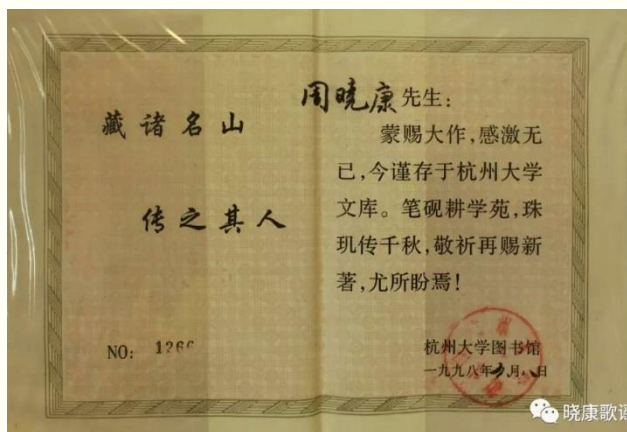 藏诸名山
传之其人
NO: 1266
周晓康先生:
蒙赐大作,感激无
已,今谨存于杭州大学
文库。笔砚耕学苑,珠
玑传千秋,敬祈再赐新
著,尤所盼焉!
杭州大学图书馆
一九九八年 月八日
晓康歌谣